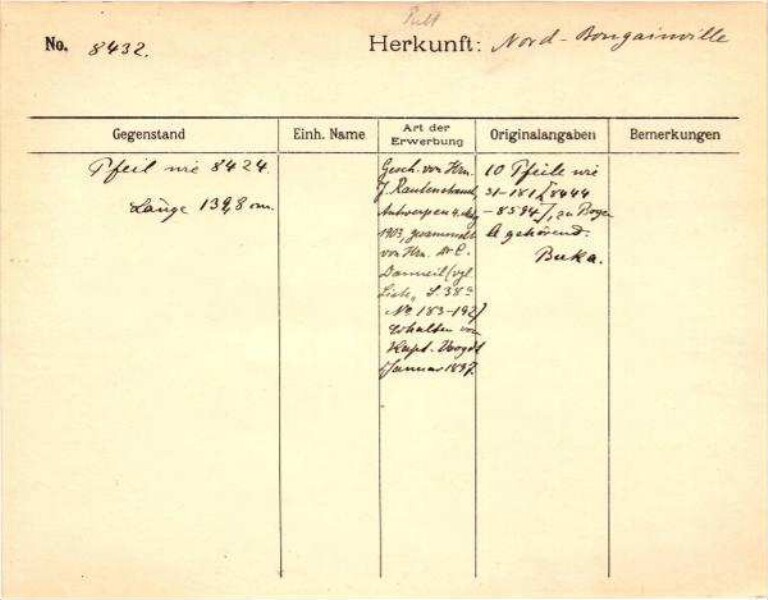 No. 8432.
Herkunft: Nord-Bougainville
Gegenstand
Einh. Name
Art der Erwerbung
Originalangaben
Bemerkungen
Pfeil wie 8424.
Länge 139,8 cm.
Gesch. von Hrn.
J. Rautenstrauch,
Antwerpen 4. Aug
1903, gesammelt
von Hrn. Dr C.
Danneil (vgl.
Liste, S. 38a
No 183-192)
Erhalten von
Kapt. Voogdt
Januar 1897.
10 Pfeile wie
31-181 [8444
-8594], zu Bogen
A gehörend.
Buka.